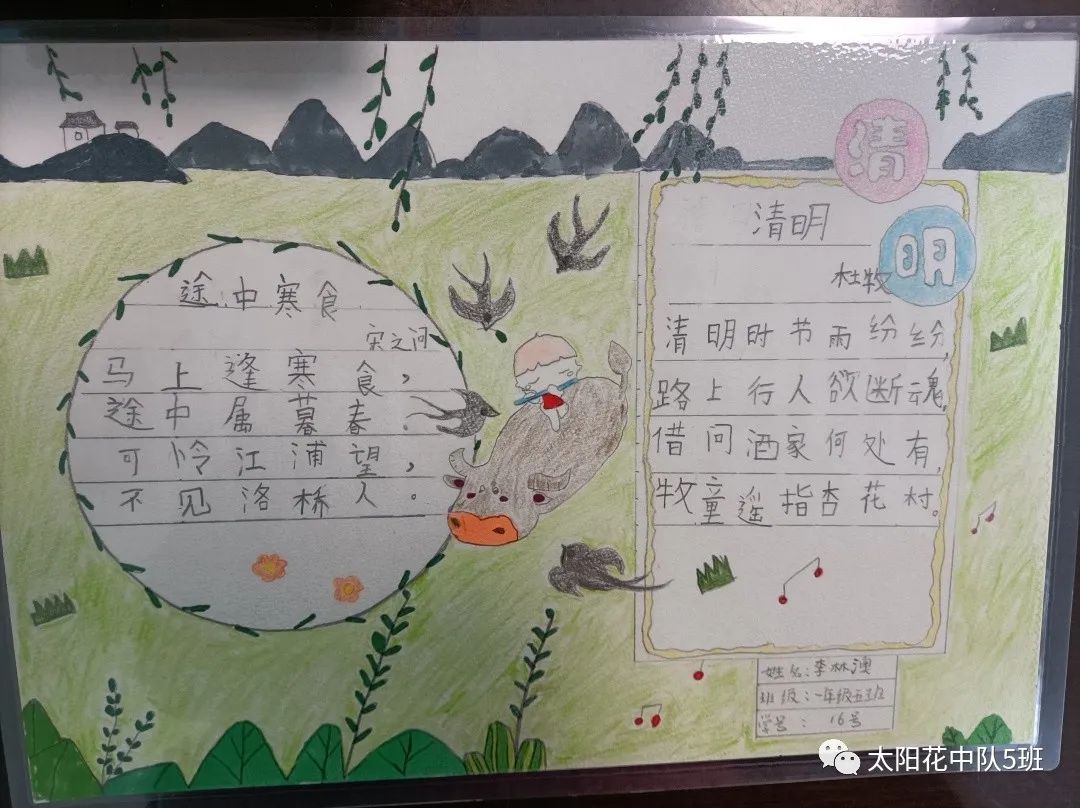 途中寒食
宋之问
马上逢寒食，
途中属暮春.
可怜江浦望，
不见洛桥人。
清
明
清明
杜牧
清明时节雨纷纷,
路上行人欲断魂,
借问酒家何处有,
牧童遥指杏花村。
姓名:李林澳
班级:一年级五班
学号: 16号
太阳花中队5班